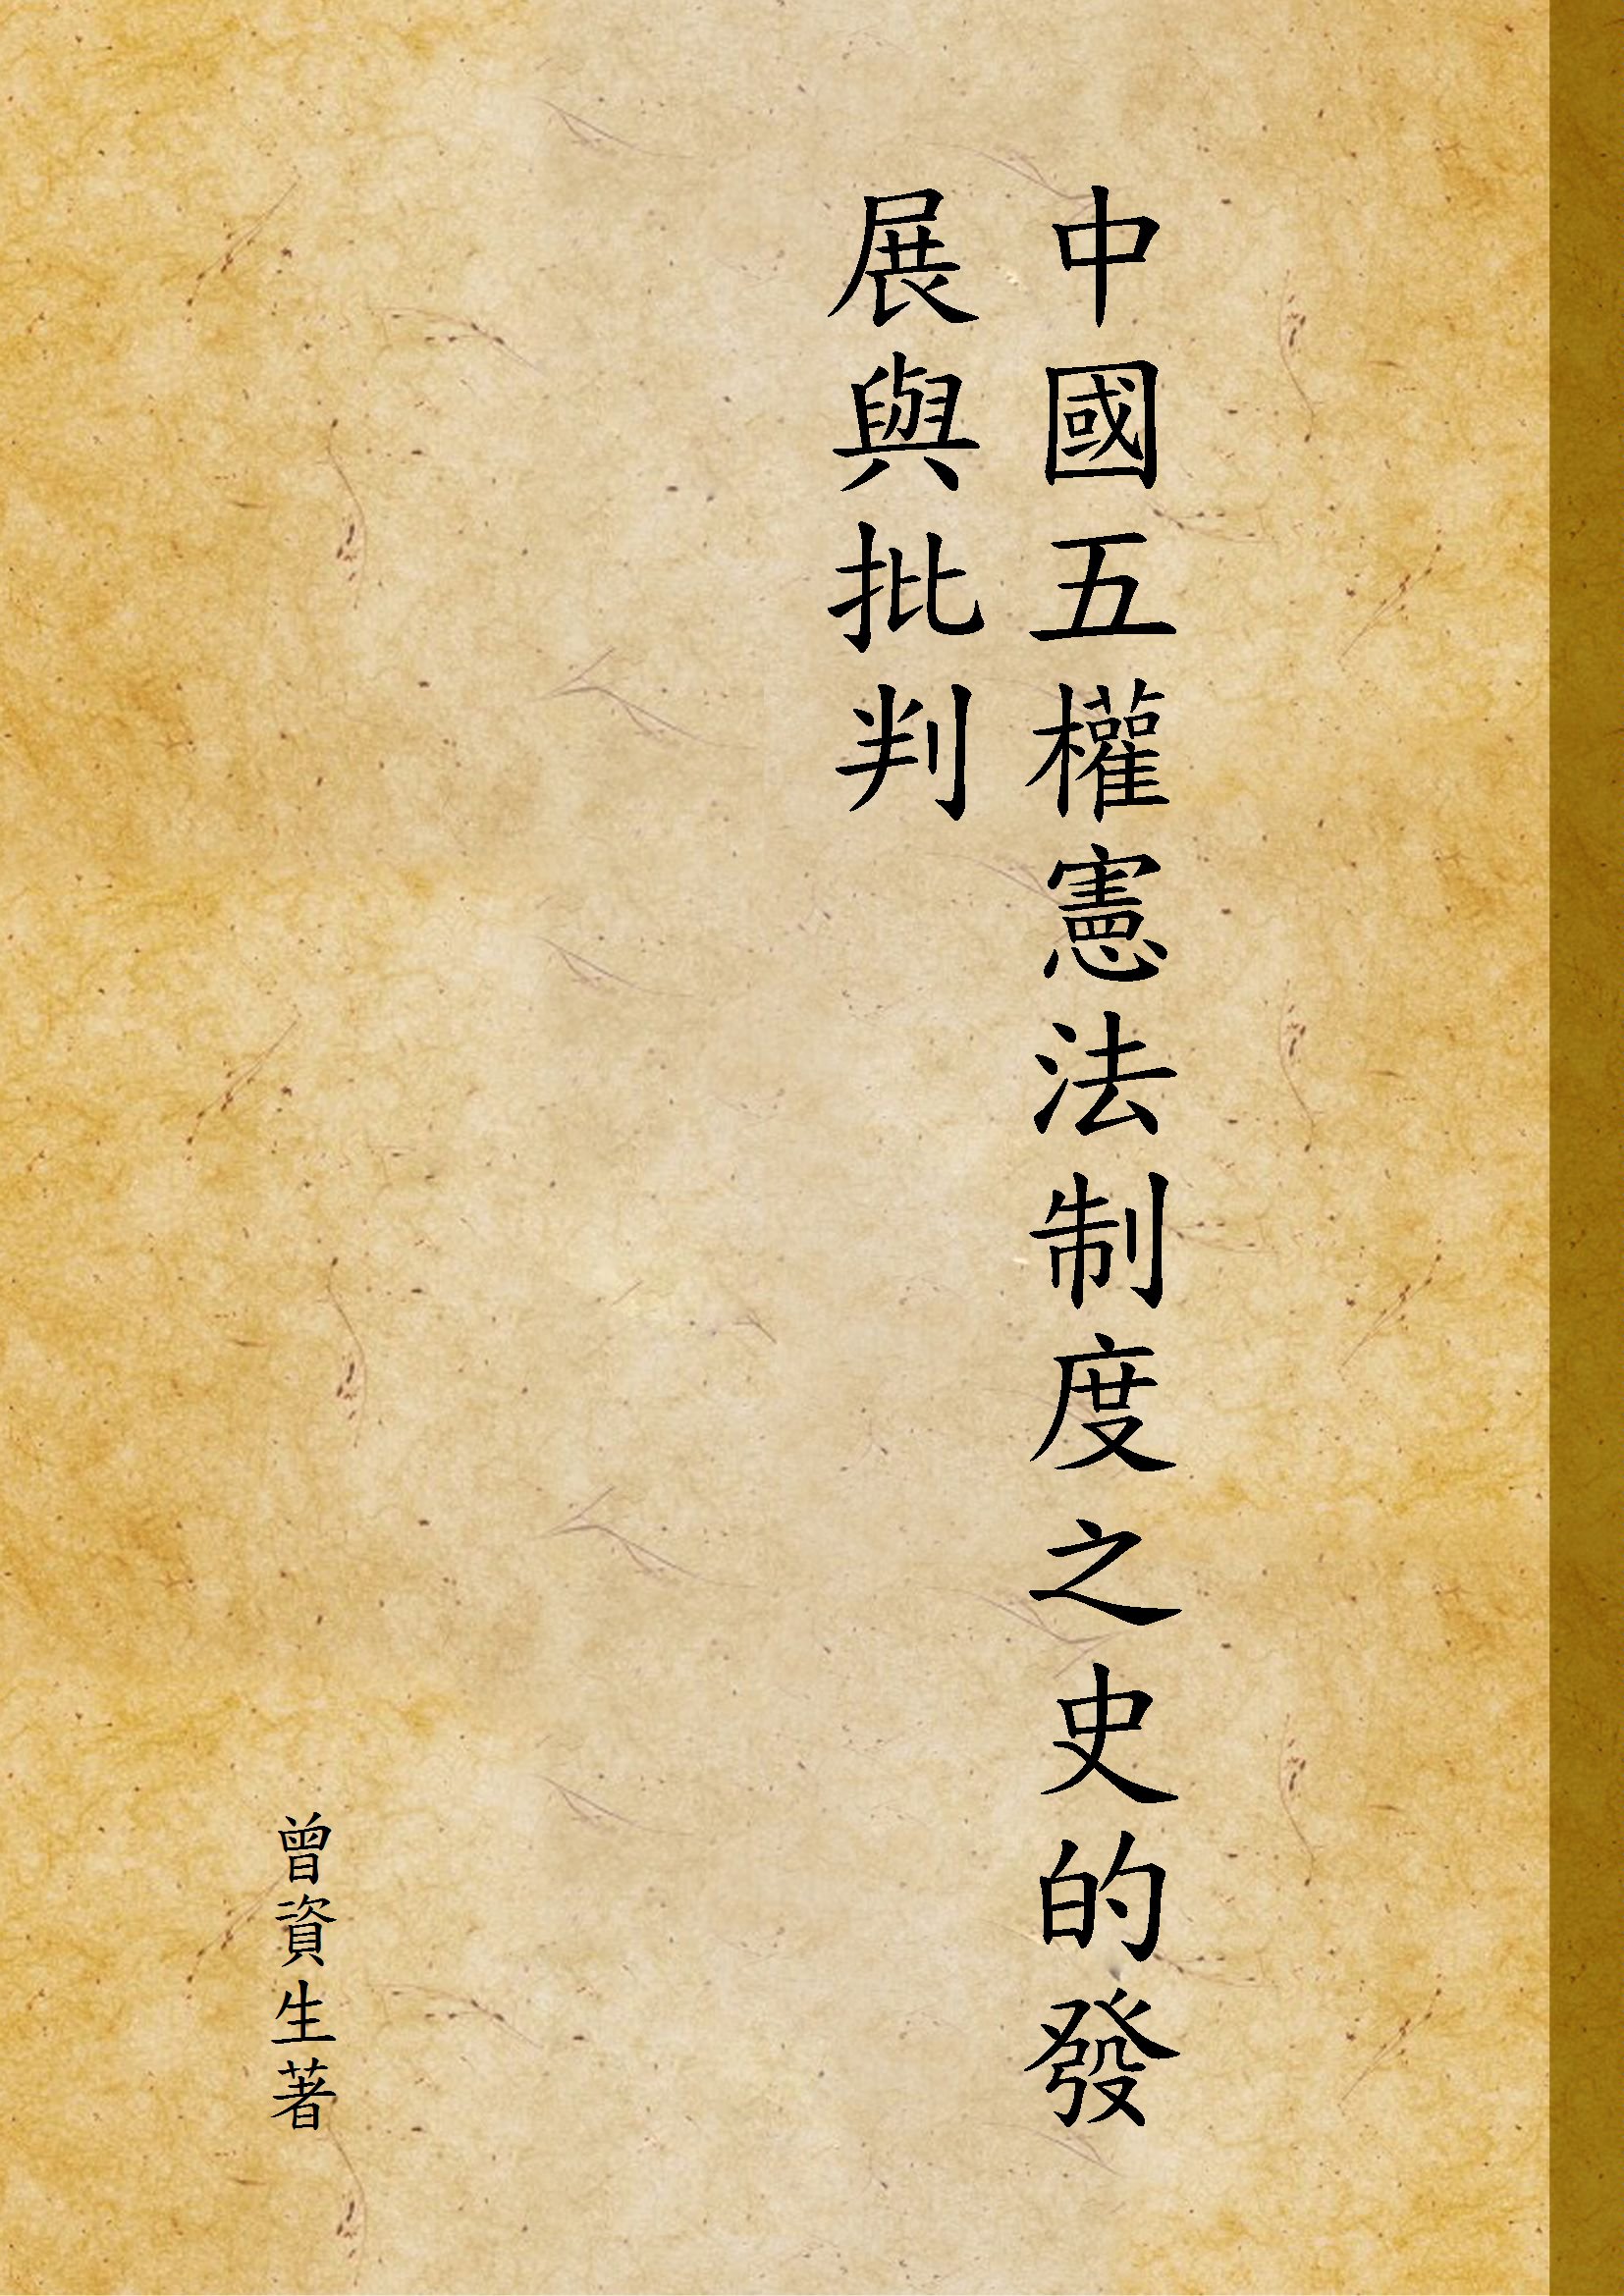 中國五權憲法制度之史的發
展與批判
曾資生著